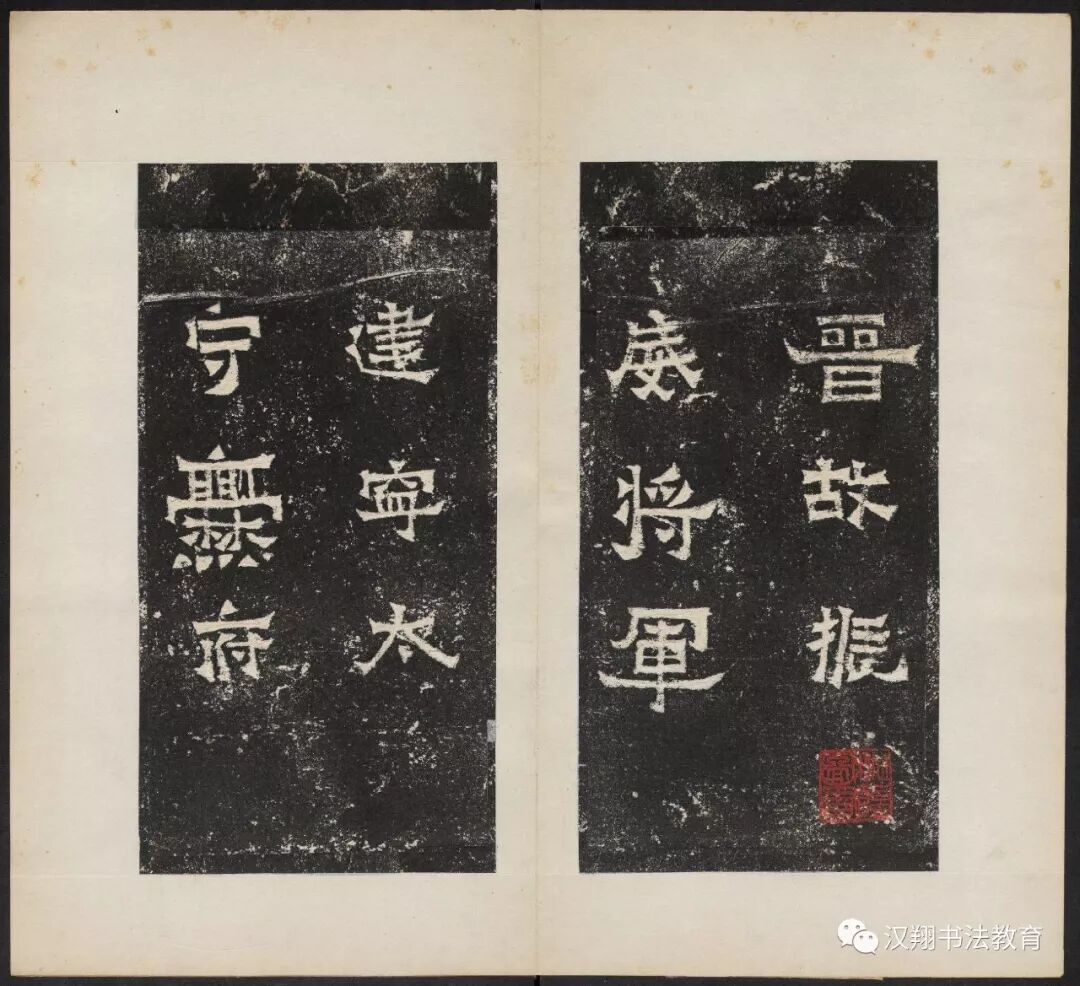 晉故振
威將軍
建寧太
守爨府
汉翔书法教育